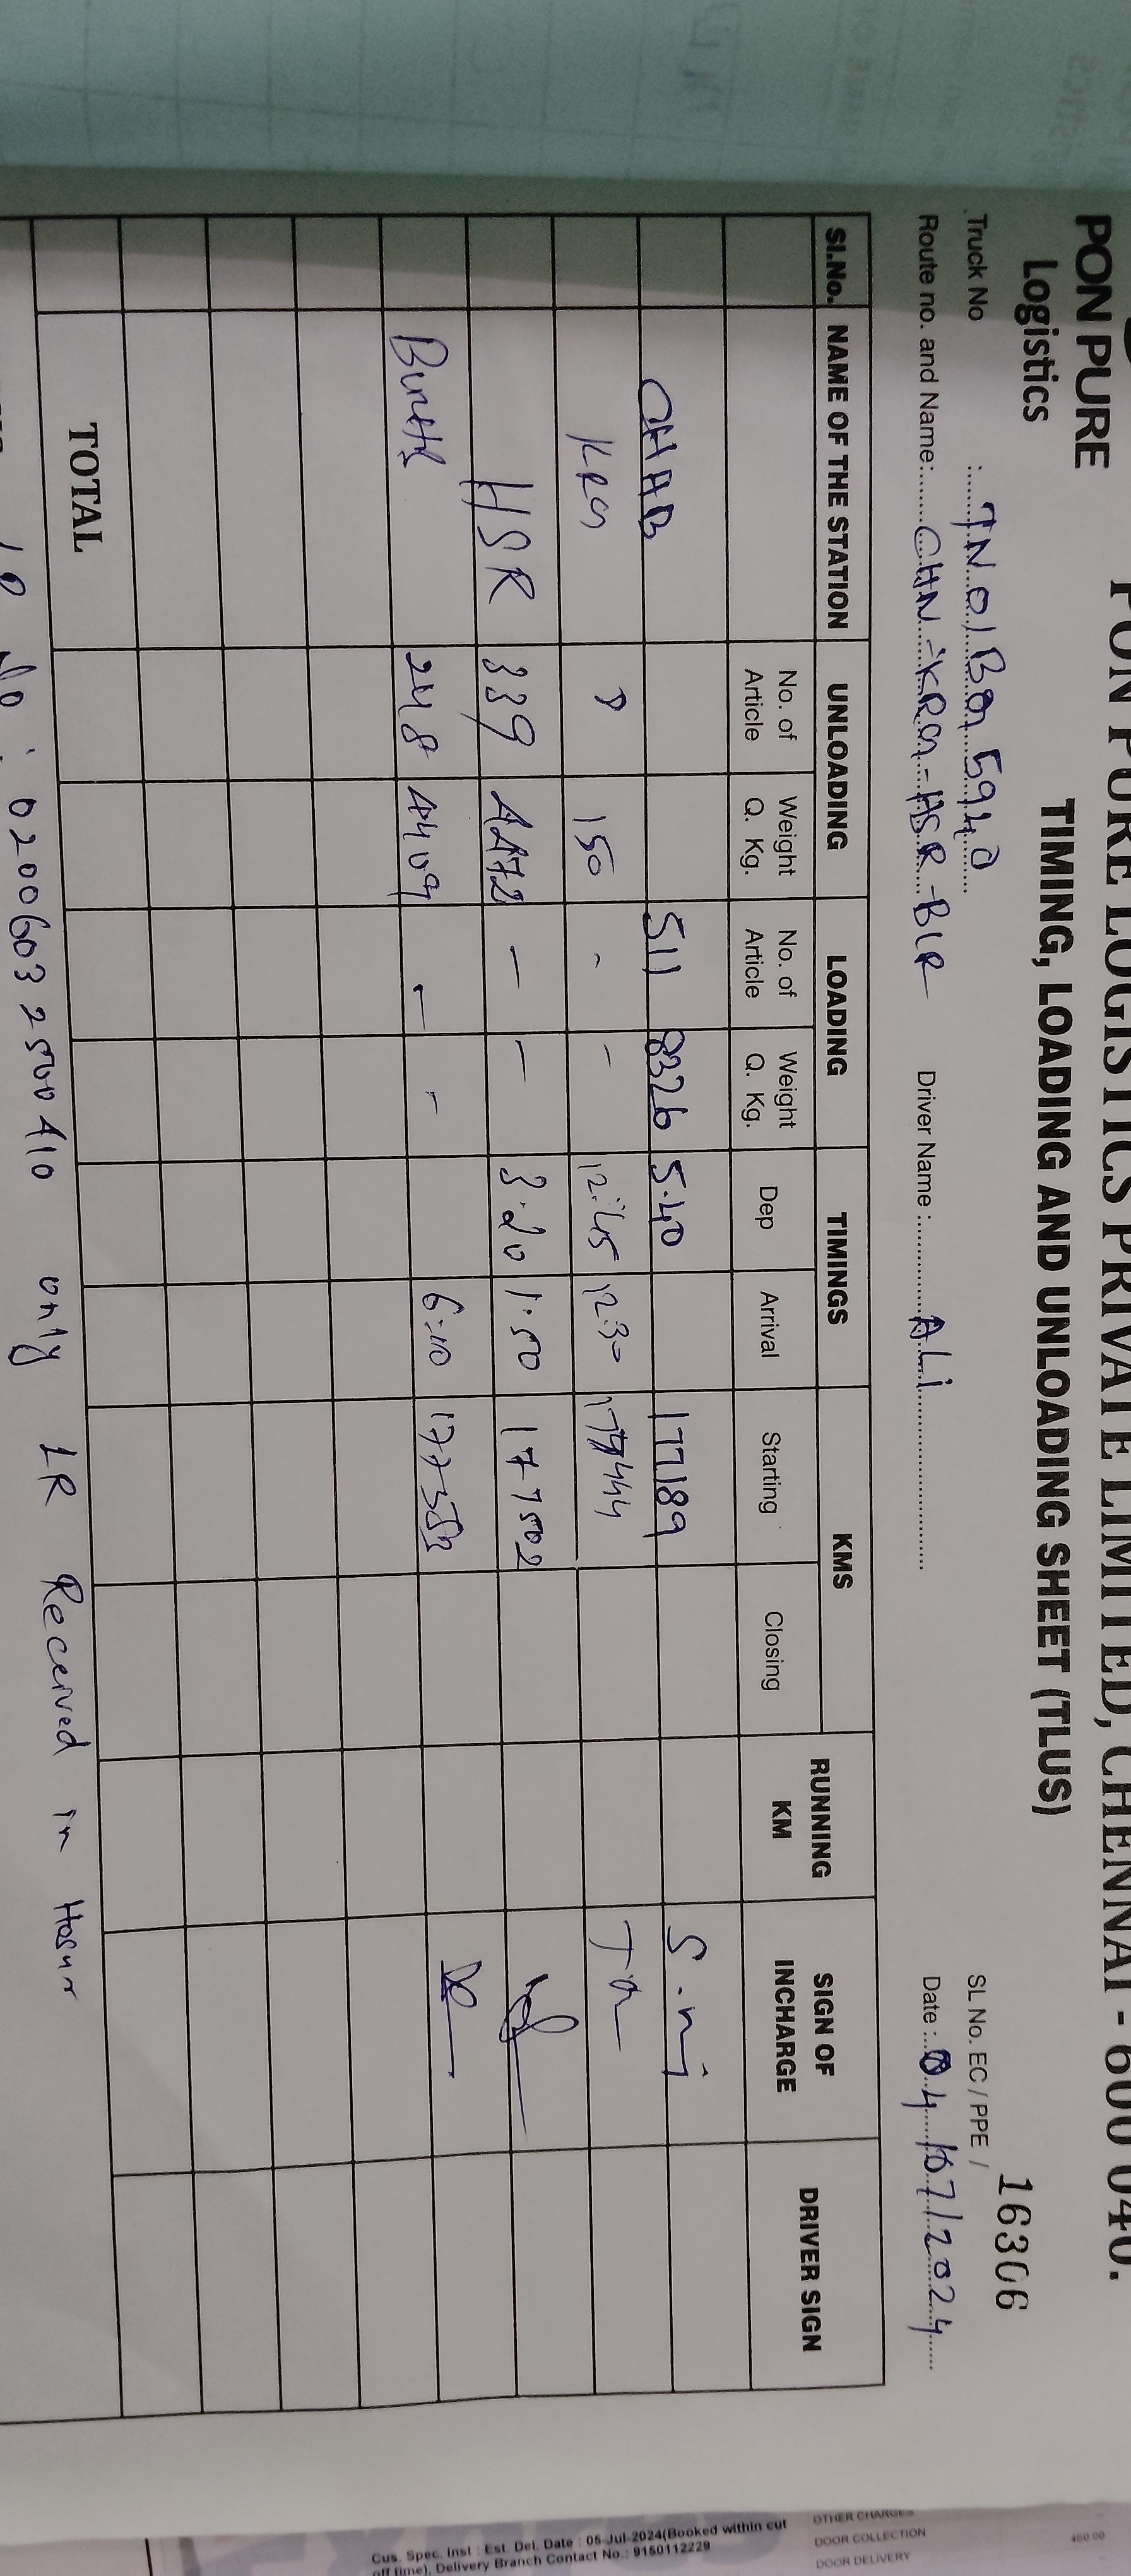 PON PURE LOGISTICS PRIVATE LIMITED, CHENNAI - 600 040.
PON PURE
Logistics
TIMING, LOADING AND UNLOADING SHEET (TLUS)
16306
Truck No : TN 01 BQ 5940 SL No. EC / PPE /
Route no. and Name: CHN - KRG - HSR - BLR Driver Name : ALi Date : 04/07/2024
Sl.No. NAME OF THE STATION UNLOADING LOADING TIMINGS KMS RUNNING KM SIGN OF INCHARGE DRIVER SIGN
No. of Article Weight Q. Kg. No. of Article Weight Q. Kg. Dep Arrival Starting Closing
CHAB 511 8326 5.40 177189
KRG 150 - - 12:45 12.30
HSR 339 4472 - - 3.20 1.50 177502
248 4409 - - 6:10
TOTAL
: 0200603 2500410 only LR Received in Hosur
Cus. Spec. Inst : Est. Del. Date : 05-Jul-2024(Booked within cut
off time), Delivery Branch Contact No.: 9150112229
OTHER CHARGES
DOOR COLLECTION 450.00
DOOR DELIVERY